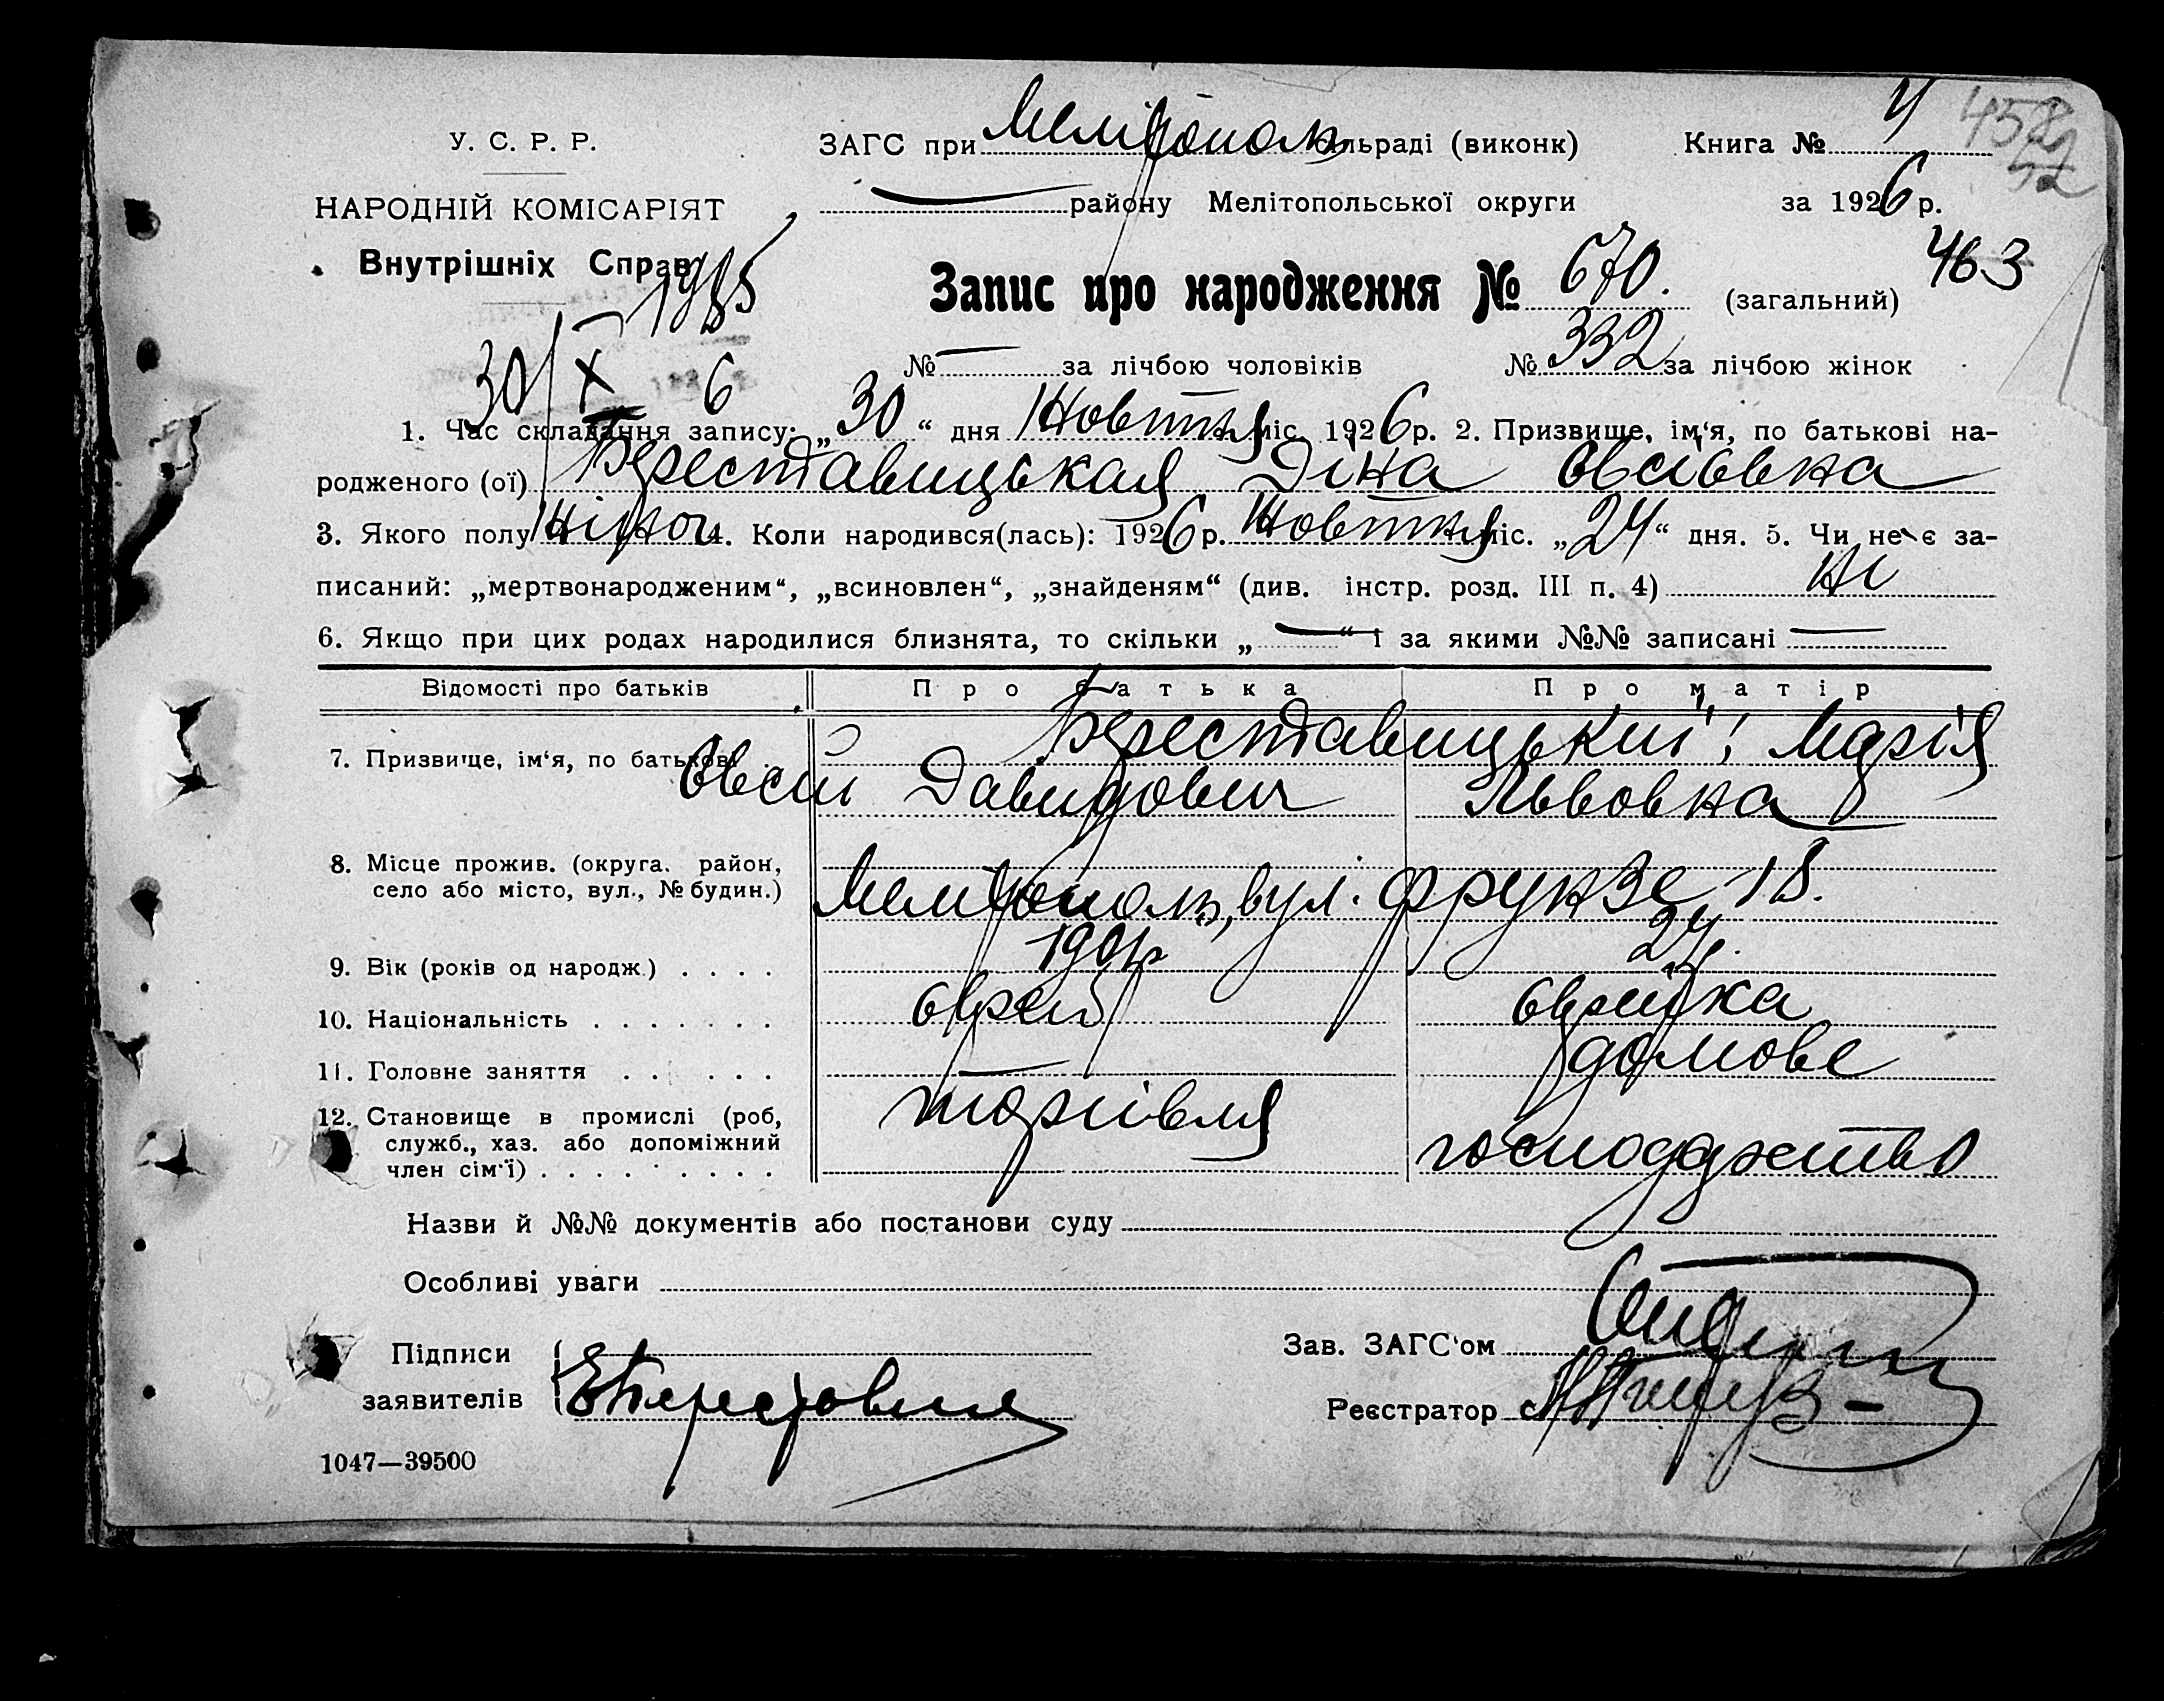 У. С. Р. Р.
НАРОДНІЙ КОМІСАРІЯТ
Внутрішніх Справ
ЗАГС при Мелітополь сільраді (виконк) Книга № 4
458
52
— району Мелітопольської округи за 1926 р.
463
Запис про народження № 670. (загальний)
№ — за лічбою чоловіків № 332 за лічбою жінок
30/X 6
1. Час складання запису: „30“ дня Жовтня міс. 1926 р. 2. Призвище, ім‘я, по батькові на-
родженого (ої) Береставицькая Діна Овсіовна
3. Якого полу жіноч 4. Коли народився(лась): 1926 р. Жовтня міс. „24“ дня. 5. Чи не є за-
писаний: „мертвонародженим“, „всиновлен“, „знайденям“ (див. інстр. розд. III п. 4) ні
6. Якщо при цих родах народилися близнята, то скільки „—“ і за якими №№ записані —
Відомості про батьків Про батька Про матір
7. Призвище, ім‘я, по батькові Береставицький; Марія
Овсій Давидович Львовна
8. Місце прожив. (округа, район,
село або місто, вул., № будин.) Мелітополь, вул. Фрунзе 18.
9. Вік (років од народж.) . . . . 1901р 24.
10. Національність . . . . . . . єврей єврейка
11. Головне заняття . . . . . . — домове
12. Становище в промислі (роб,
служб., хаз. або допоміжний
член сім‘ї) . . . . . . . . . торгівля господарство
Назви й №№ документів або постанови суду
Особливі уваги
Підписи
заявителів
Зав. ЗАГС‘ом
Реєстратор
1047—39500